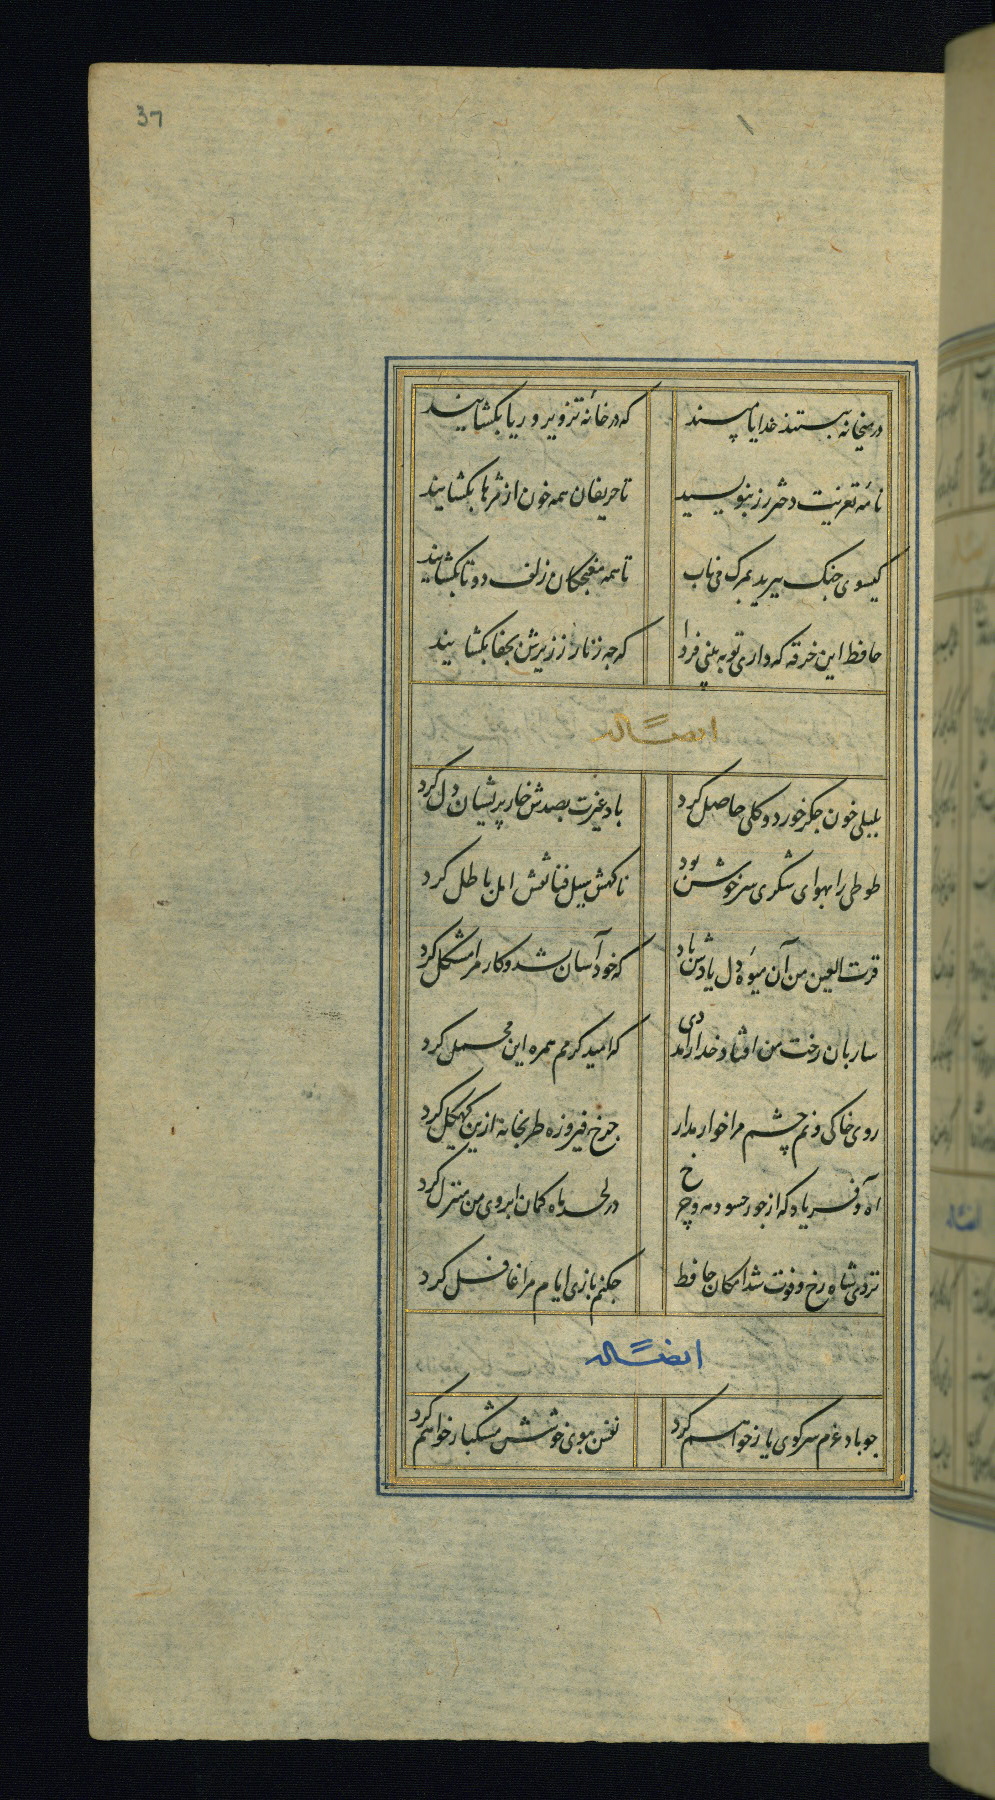 37
در میخانه ببستند خدایا مپسند که در خانهٔ تزویر و ریا بکشایند
نامهٔ تعزیت دختر رز بنویسید تا حریفان همه خون از مژها بکشایند
کیسوی چنک ببرید بمرک می ناب تا همه مغبچکان زلف دوتا بکشایند
حافظ این خرقه که داری تو به بینی فردا که چه زنار ز زیرش بجفا بکشایند
ایضاً له
بلبلی خون جکر خورد و کلی حاصل کرد باد غیرت بصدش خار پریشان دل کرد
طوطی را بهوای شکری سرخوش بود ناکهش سیل فنا نقش امل باطل کرد
قرت العین من آن میوهٔ دل یادش باد که خود آسان بشد و کار مرا مشکل کرد
ساربان رخت من افتاد خدا را مددی که امید کرمم همره این محمل کرد
روی خاکی و نم چشم مرا خوار مدار چرخ فیروزه طربخانه ازین کهکل کرد
آه و فریاد که از جور حسود مه و چرخ در لحد ماه کمان ابروی من منزل کرد
نزدی شاه رخ و فوت شد امکان حافظ چکنم بازی ایام مرا غافل کرد
ایضاً له
چو باد عزم سر کوی یار خواهم کرد نفس ببوی خوشش مشکبار خواهم کرد